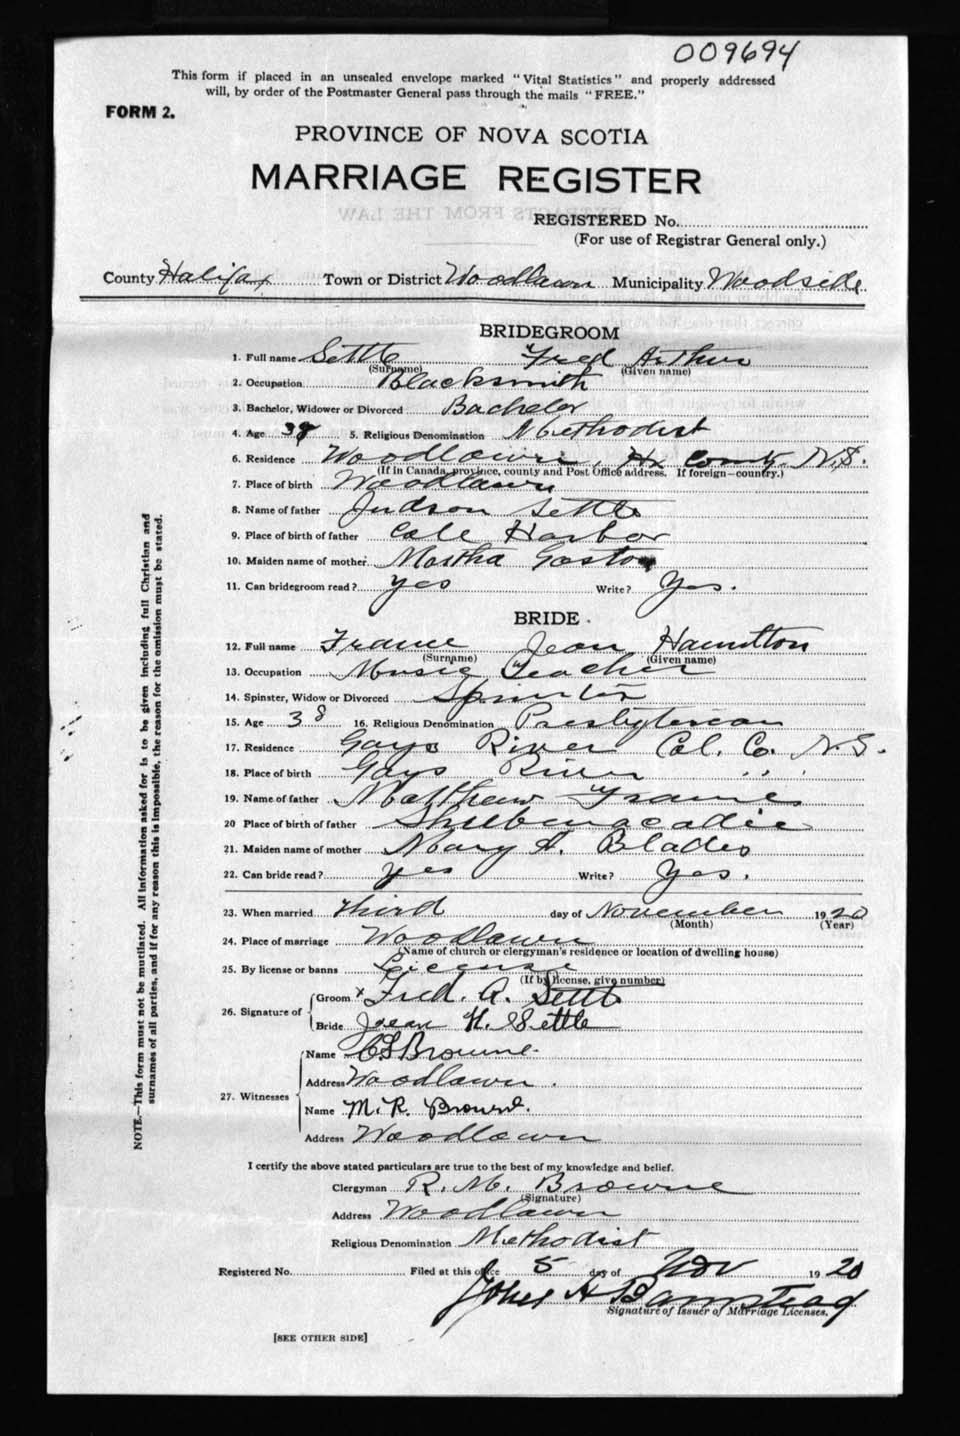 009694
This form if placed in an unsealed envelope marked "Vital Statistics" and properly addressed
will, by order of the Postmaster General pass through the mails "FREE."
FORM 2.
PROVINCE OF NOVA SCOTIA
MARRIAGE REGISTER
EXTRACTS FROM THE LAW
REGISTERED No.
(For use of Registrar General only.)
County Halifax Town or District Woodlawn Municipality Woodside
BRIDEGROOM
1. Full name Settle Fred Arthur
(Surname) (Given name)
2. Occupation Blacksmith
3. Bachelor, Widower or Divorced Bachelor
4. Age 38 5. Religious Denomination Methodist
6. Residence Woodlawn, Hx County N.S.
(If in Canada, province, county and Post Office address. If foreign—country.)
7. Place of birth Woodlawn
8. Name of father Judson Settle
9. Place of birth of father Cole Harbor
10. Maiden name of mother Martha Gaston
11. Can bridegroom read? yes Write? Yes.
BRIDE
12. Full name Frame Jean Hamilton
(Surname) (Given name)
13. Occupation Music Teacher
14. Spinster, Widow or Divorced Spinster
15. Age 38 16. Religious Denomination Presbyterian
17. Residence Gays River Col. Co. N.S.
18. Place of birth Gays River " "
19. Name of father Matthew Frame
20 Place of birth of father Shubenacadie
21. Maiden name of mother Mary A. Blades
22. Can bride read? yes Write? Yes.
23. When married third day of November 1920
(Month) (Year)
24. Place of marriage Woodlawn
(Name of church or clergyman's residence or location of dwelling house)
25. By license or banns License
(If by license, give number)
26. Signature of Groom x Fred. A. Settle
Bride Jean H. Settle
27. Witnesses
Name C S Browne.
Address Woodlawn.
Name M. R. Browne.
Address Woodlawn
I certify the above stated particulars are true to the best of my knowledge and belief.
Clergyman R. M. Browne
(Signature)
Address Woodlawn
Religious Denomination Methodist
Registered No. Filed at this office 5 day of Nov 1920
John H
Signature of Issuer of Marriage Licenses.
[SEE OTHER SIDE]
NOTE.—This form must not be mutilated. All information asked for is to be given including full Christian and
surnames of all parties, and if for any reason this is impossible, the reason for the omission must be stated.